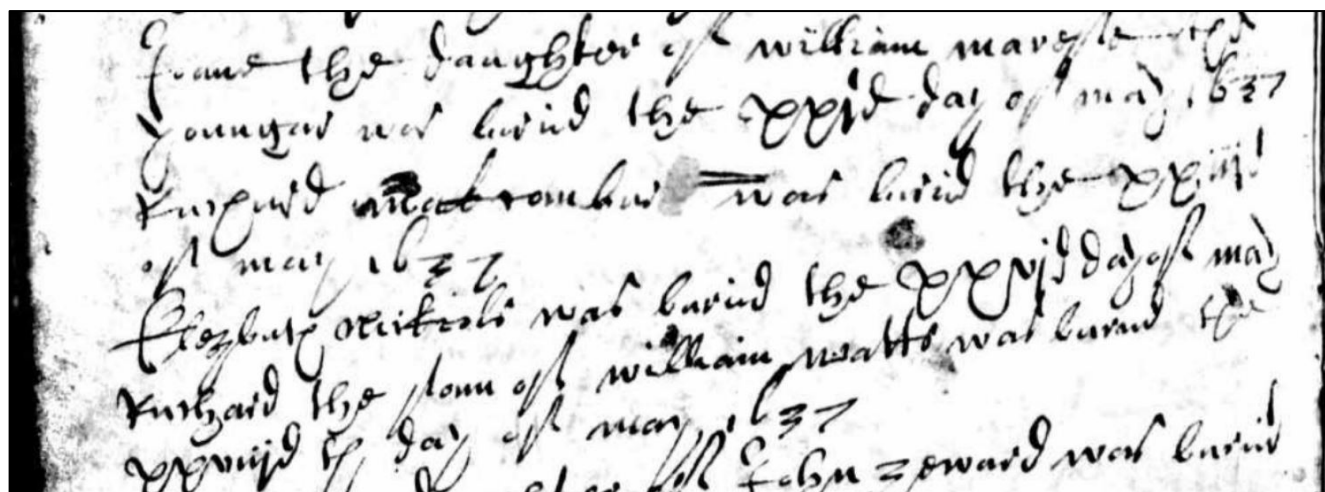 Joane the daughter of william mareste the
younger was buried the xxjd day of may 1637
Richard was buried the xxiijd
of may 1637
Elezbath nickols was burid the xxvjd day of may
Richard the sonn of william watts was buried the
xxviijd th day of may 1637
of John was buried